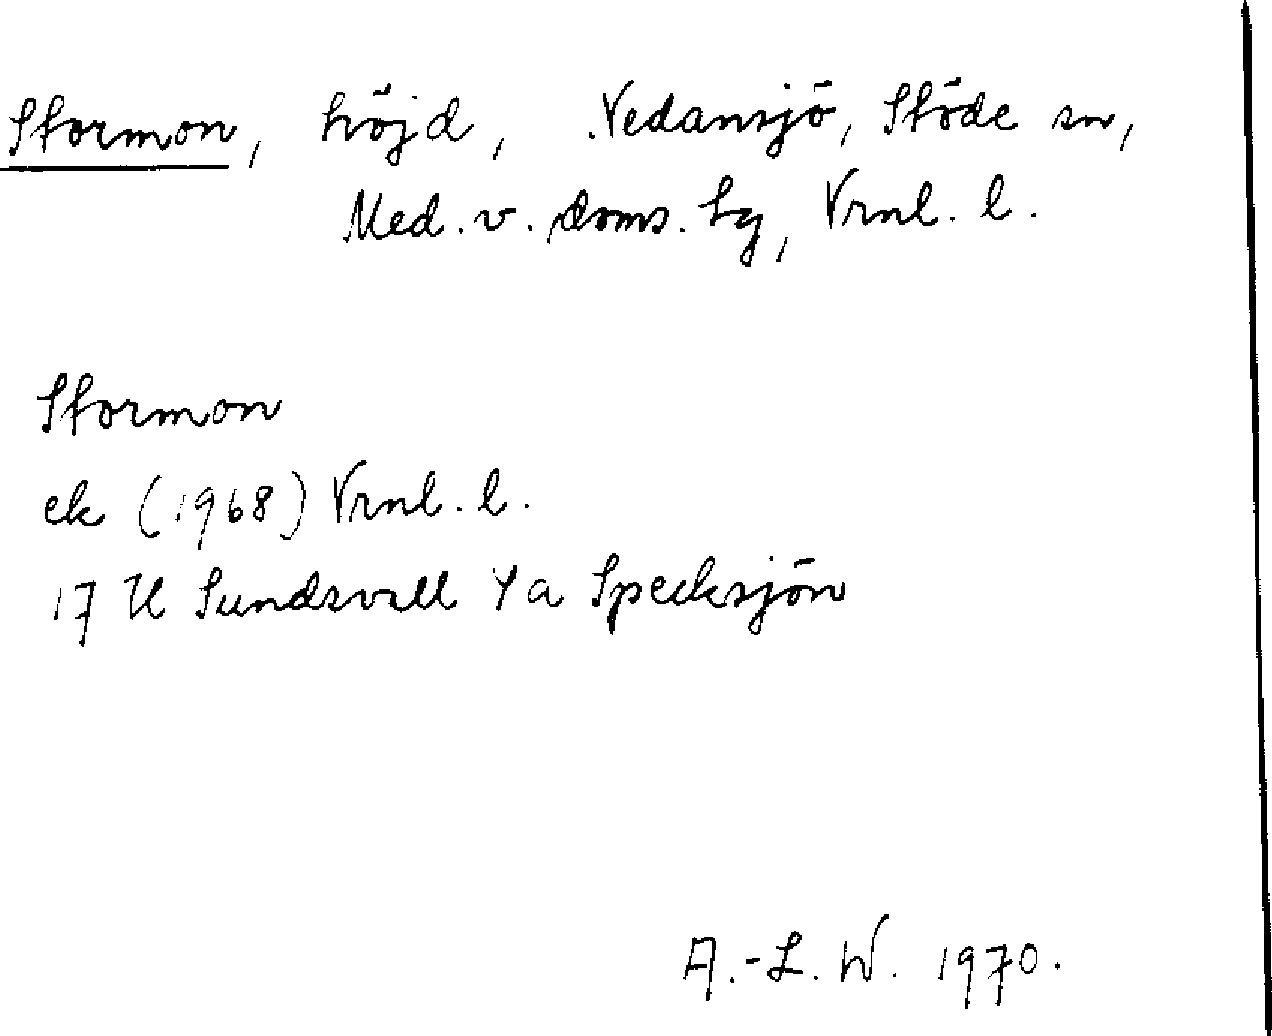 Stormon, höjd, Nedansjö, Stöde sn,
Med. v. doms. hg, Vrnl. l.
Stormon
ek (1968) Vrnl. l.
17 H Sundsvall 4 a Specksjön
A.-L. W. 1970.